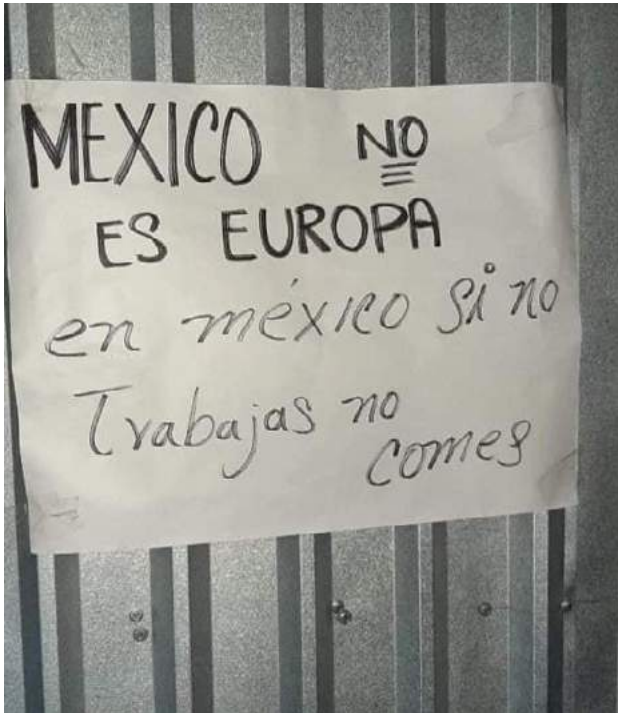 MEXICO NO
ES EUROPA
en méxico si no
Trabajas no
comes